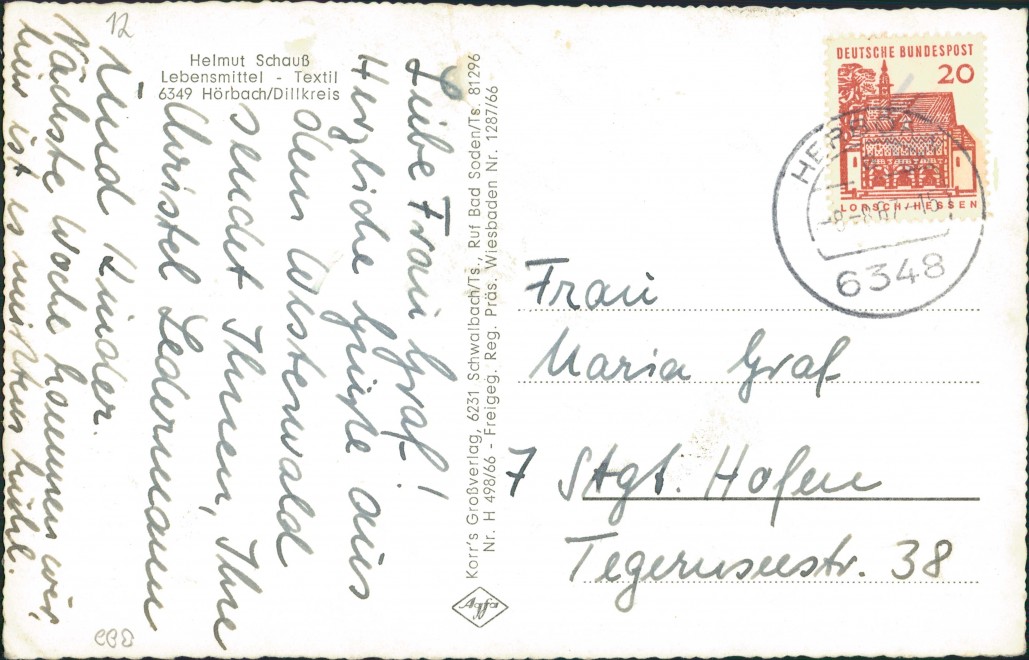 12
Helmut Schauß
Lebensmittel - Textil
6349 Hörbach/Dillkreis
Liebe Frau Graf!
Herzliche Grüße aus
dem Westerwald
sendet Ihnen, Ihre
Christel Ledermann
und Kinder.
Nächste Woche kommen wir,
hier ist es meistens kühl.
Korr's Großverlag, 6231 Schwalbach/Ts., Ruf Bad Soden/Ts. 81296
Nr. H 498/66 - Freigeg. Reg. Präs. Wiesbaden Nr. 1287/66
Agfa
DEUTSCHE BUNDESPOST
20
LORSCH/HESSEN
6348
Frau
Maria Graf
7 Stgt. Hofen
Tegernseestr. 38